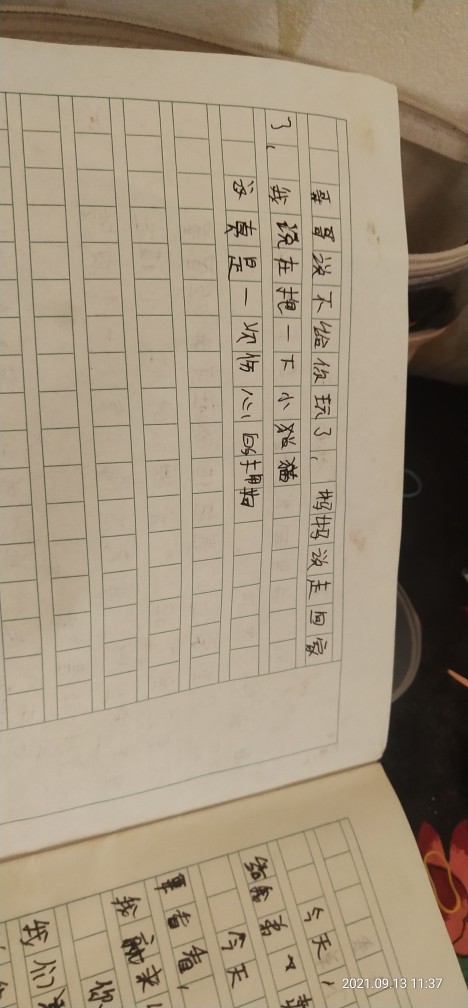 哥哥说不给你玩了,妈妈说走回家
了,我说在抱一下小猫猫
真是一次伤心的
今天,
今天
看看,
我就来
你
我们
2021.09.13 11:37